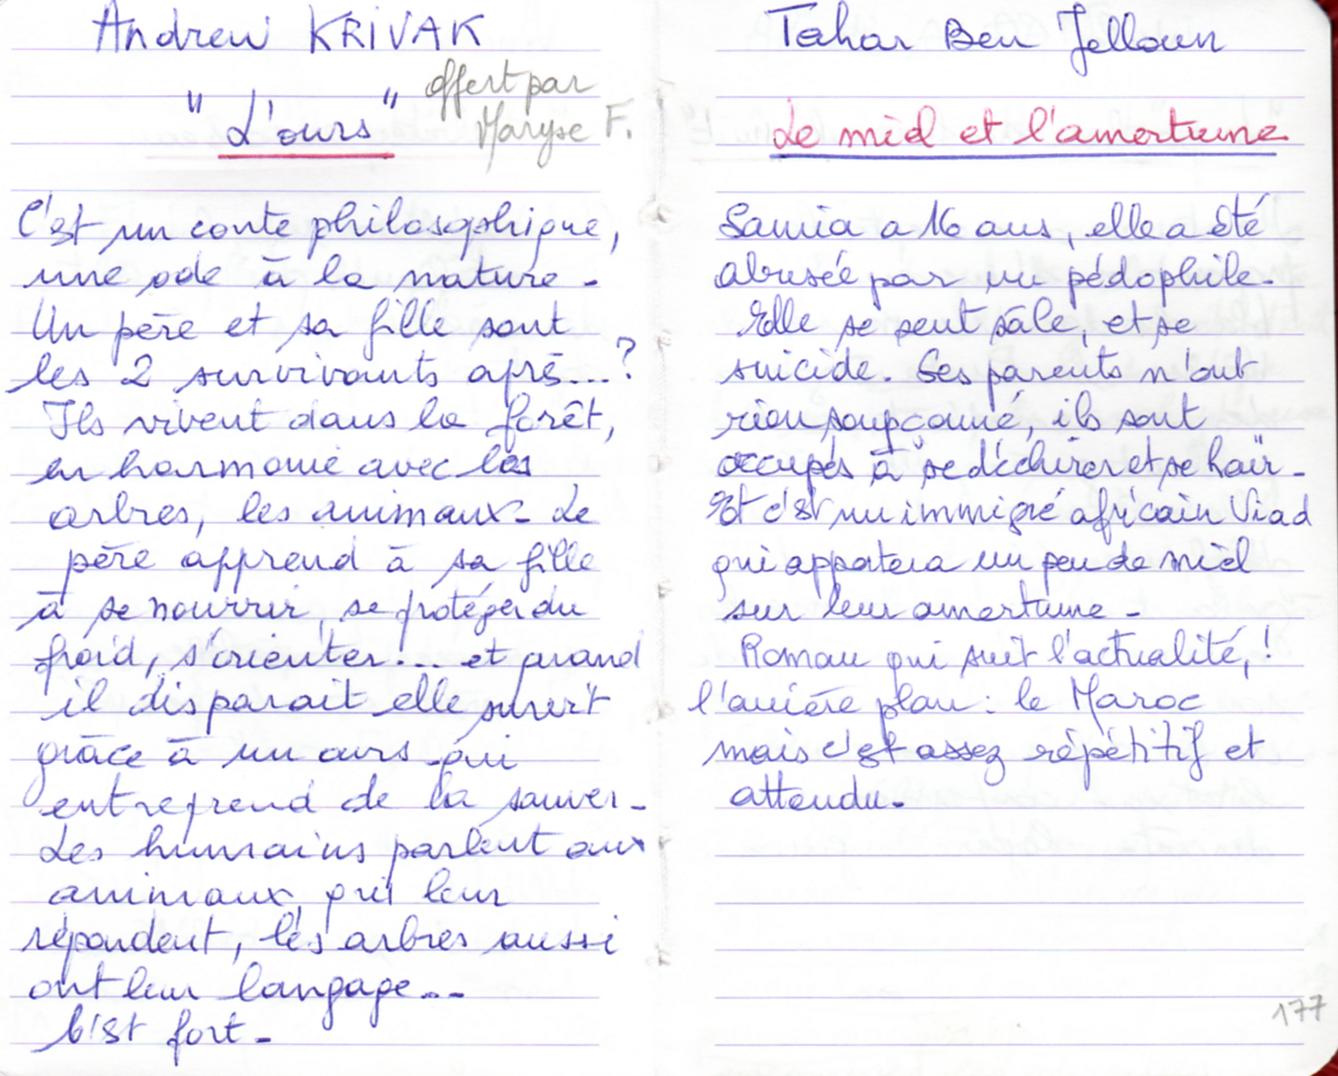 Andrew KRIVAK
offert par
"L'ours" Maryse F.
C'est un conte philosophique,
une ode à la nature -
Un père et sa fille sont
les 2 survivants après...?
Ils vivent dans la forêt,
en harmonie avec les
arbres, les animaux - Le
père apprend à sa fille
à se nourrir, se protéger du
froid, s'orienter... et quand
il disparait elle survit
grâce à un ours qui
entreprend de la sauver -
Les humains parlent aux
animaux, qui leur
répondent, les arbres aussi
ont leur langage...
C'est fort -
Tahar Ben Jelloun
Le miel et l'amertume
Samia a 16 ans, elle a été
abusée par un pédophile.
Elle se sent sale, et se
suicide. Ses parents n'ont
rien soupçonné, ils sont
occupés à "se déchirer et se haïr" -
Et c'est un immigré africain Viad
qui apportera un peu de miel
sur leur amertume -
Roman qui suit l'actualité, !
l'arrière plan : le Maroc
mais c'est assez répétitif et
attendu -
177